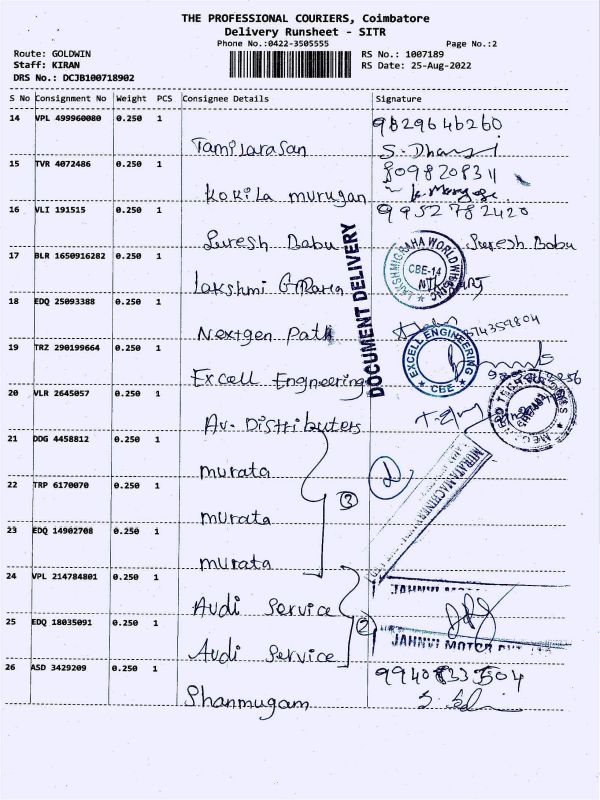 THE PROFESSIONAL COURIERS, Coimbatore
Delivery Runsheet - SITR
Phone No.:0422-3505555 Page No.:2
Route: GOLDWIN RS No.: 1007189
Staff: KIRAN RS Date: 25-Aug-2022
DRS No.: DCJB100718902
S No Consignment No Weight PCS Consignee Details Signature
14 VPL 499960080 0.250 1 9829646260
Tamilarasan
15 TVR 4072486 0.250 1 809820831
Kokila murugan
16 VLI 191515 0.250 1 9952782420
Suresh Babu Suresh Babu
17 BLR 1650916282 0.250 1
LAKSHMIGRAHA WORLDWIDE
CBE-14
DOCUMENT DELIVERY
18 EDQ 25093388 0.250 1
Nextgen
19 TRZ 290199664 0.250 1
EXCELL ENGINEERING
CBE
Excell Engneering
20 VLR 2645057 0.250 1
Av. Distributers
21 DDG 4458812 0.250 1
murata
22 TRP 6170070 0.250 1 3
murata
23 EDQ 14902708 0.250 1
murata
24 VPL 214784801 0.250 1
Audi Service
25 EDQ 18035091 0.250 1 2
JAHNVI MOTOR PVT
Audi Service
26 ASD 3429209 0.250 1
Shanmugam